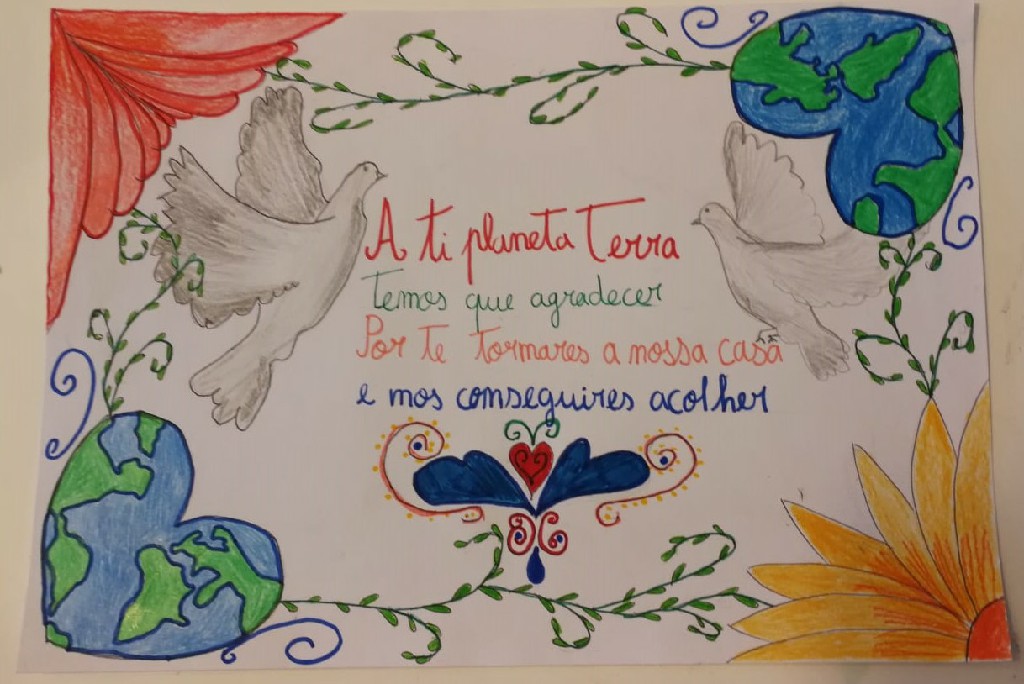 A ti planeta Terra
Temos que agradecer
Por te tornares a nossa casa
e nos conseguires acolher